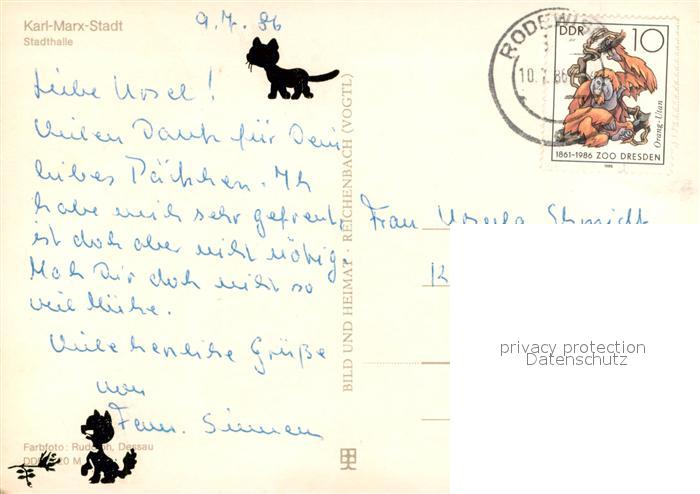 Karl-Marx-Stadt
Stadthalle
9.7.86
Liebe Ursel!
Vielen Dank für Dein
liebes Päckchen. Ich
habe mich sehr gefreut,
ist doch aber nicht nötig.
Mach Dir doch nicht so
viel Mühe.
Viele herzliche Grüße
von
Fam.
Farbfoto: Dessau
BILD UND HEIMAT · REICHENBACH (VOGTL)
RODEWI
10.7.86
DDR 10
Orang-Utan
1861-1986 ZOO DRESDEN
1986
Frau Ursula Schmidt
privacy protection
Datenschutz